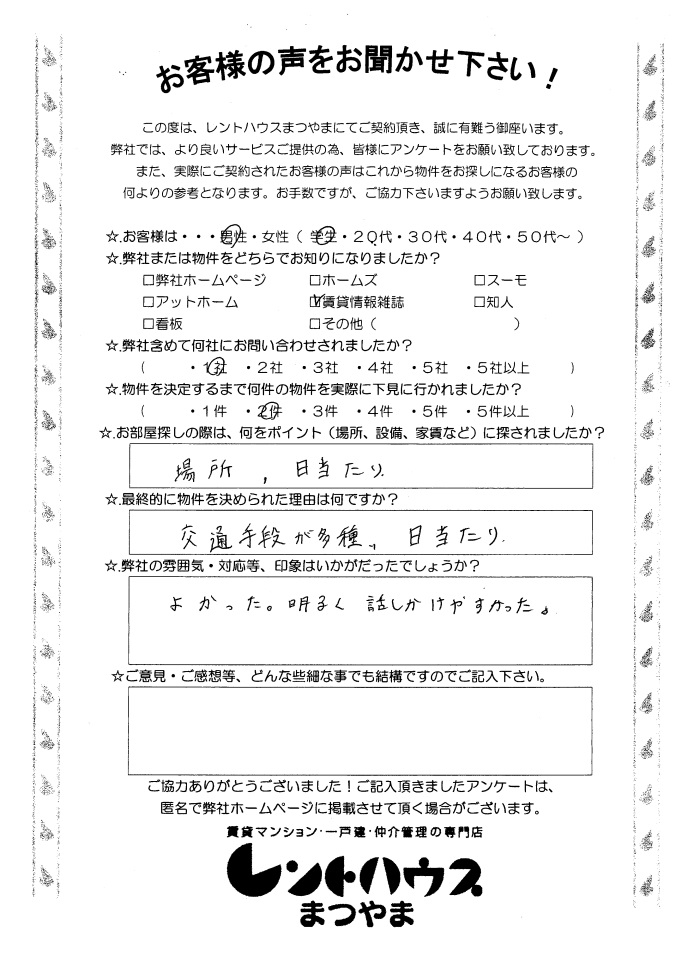 お客様の声をお聞かせ下さい！
この度は、レントハウスまつやまにてご契約頂き、誠に有難う御座います。
弊社では、より良いサービスご提供の為、皆様にアンケートをお願い致しております。
また、実際にご契約されたお客様の声はこれから物件をお探しになるお客様の
何よりの参考となります。お手数ですが、ご協力下さいますようお願い致します。
☆.お客様は・・・男性・女性（ 学生・２０代・３０代・４０代・５０代～ ）
☆.弊社または物件をどちらでお知りになりましたか？
□弊社ホームページ □ホームズ □スーモ
□アットホーム ☑賃貸情報雑誌 □知人
□看板 □その他（ ）
☆.弊社含めて何社にお問い合わせされましたか？
（ ・１社 ・２社 ・３社 ・４社 ・５社 ・５社以上 ）
☆.物件を決定するまで何件の物件を実際に下見に行かれましたか？
（ ・１件 ・２件 ・３件 ・４件 ・５件 ・５件以上 ）
☆.お部屋探しの際は、何をポイント（場所、設備、家賃など）に探されましたか？
場所，日当たり
☆.最終的に物件を決められた理由は何ですか？
交通手段が多種、日当たり.
☆.弊社の雰囲気・対応等、印象はいかがだったでしょうか？
よかった。明るく話しかけやすかった。
☆ご意見・ご感想等、どんな些細な事でも結構ですのでご記入下さい。
ご協力ありがとうございました！ご記入頂きましたアンケートは、
匿名で弊社ホームページに掲載させて頂く場合がございます。
賃貸マンション・一戸建・仲介管理の専門店
レントハウス
まつやま